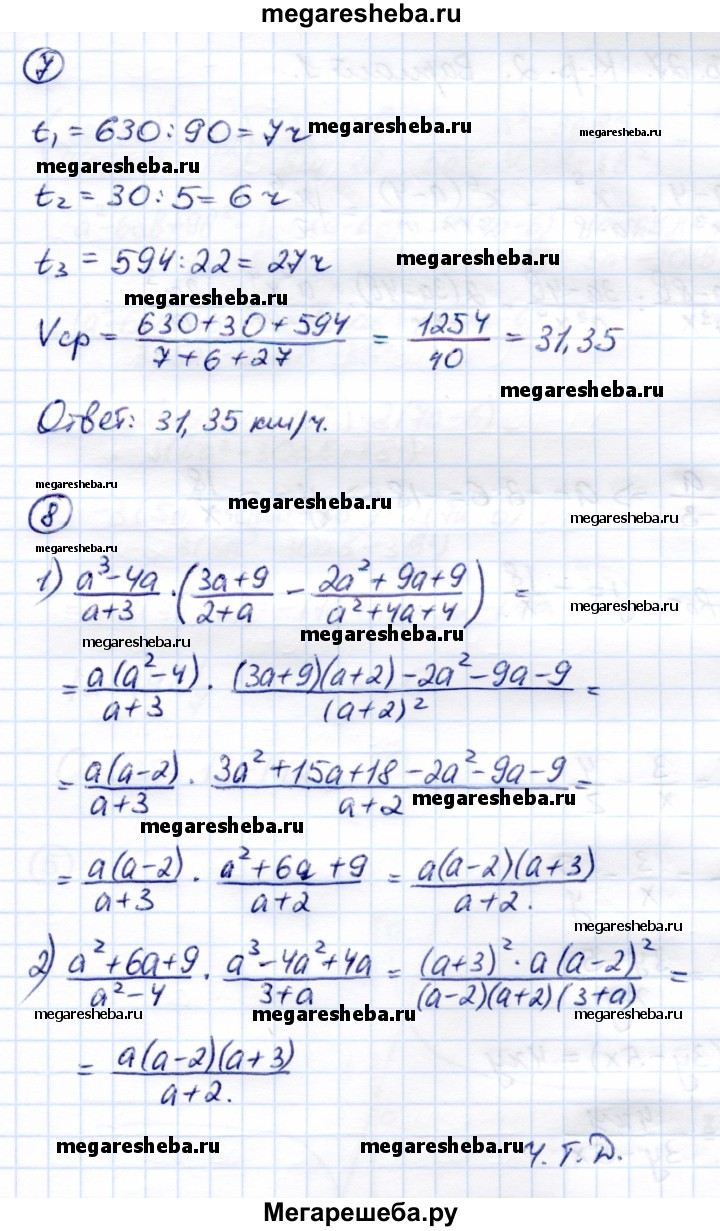 megaresheba.ru
7
t₁ = 630 : 90 = 7ч megaresheba.ru megaresheba.ru
megaresheba.ru
t₂ = 30 : 5 = 6 ч
t₃ = 594 : 22 = 27ч megaresheba.ru
megaresheba.ru
Vср = (630+30+594)/(7+6+27) = 1254/40 = 31,35
megaresheba.ru
Ответ: 31,35 км/ч.
megaresheba.ru megaresheba.ru
8 megaresheba.ru
megaresheba.ru
1) (a³-4a)/(a+3) · ((3a+9)/(2+a) - (2a²+9a+9)/(a²+4a+4)) = megaresheba.ru
megaresheba.ru megaresheba.ru
= a(a²-4)/(a+3) · ((3a+9)(a+2)-2a²-9a-9)/(a+2)² =
= a(a-2)/(a+3) · (3a²+15a+18-2a²-9a-9)/(a+2) =
megaresheba.ru
megaresheba.ru
= a(a-2)/(a+3) · (a²+6a+9)/(a+2) = a(a-2)(a+3)/(a+2).
megaresheba.ru
2) (a²+6a+9)/(a²-4) · (a³-4a²+4a)/(3+a) = ((a+3)²·a(a-2)²)/((a-2)(a+2)(3+a)) =
megaresheba.ru megaresheba.ru megaresheba.ru
= a(a-2)(a+3)/(a+2).
megaresheba.ru megaresheba.ru Ч.Т.Д.
Мегарешеба.ру